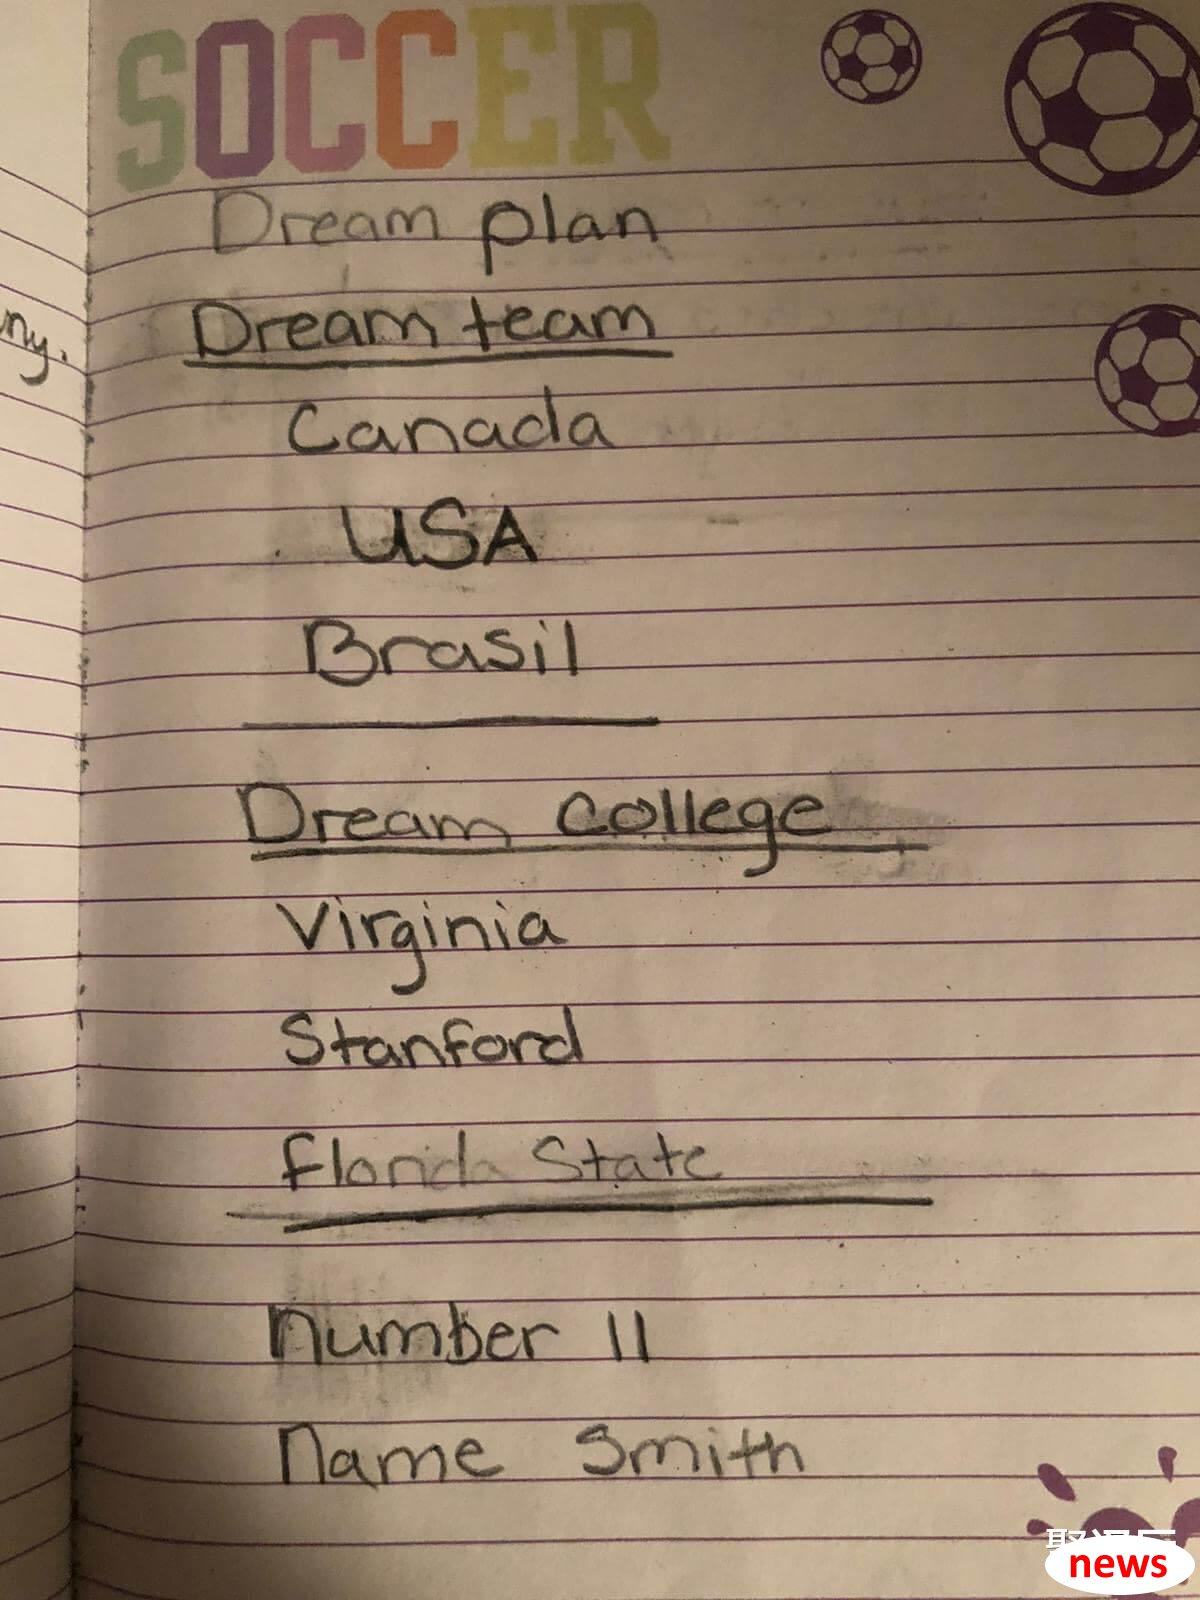 SOCCER
Dream plan
ny.
Dream team
Canada
USA
Brasil
Dream college
Virginia
Stanford
Florida State
number 11
name Smith
news